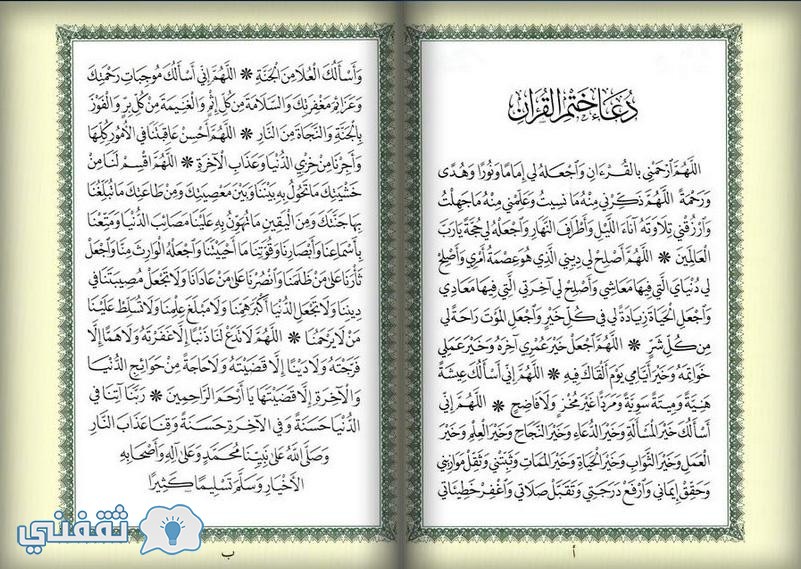 دُعَاءُ خَتْمِ القُرْآنِ
اللَّهُمَّ ٱرْحَمْنِي بالقُرْءَانِ وَٱجْعَلهُ لِي إِمَامًا وَنُورًا وَهُدًى
وَرَحْمَةً اللَّهُمَّ ذَكِّرْنِي مِنْهُ مَا نَسِيتُ وَعَلِّمْنِي مِنْهُ مَا جَهِلْتُ
وَٱرْزُقْنِي تِلَاوَتَهُ آنَاءَ اللَّيْلِ وَأَطْرَافَ النَّهَارِ وَٱجْعَلْهُ لِي حُجَّةً يَارَبَّ
العَالَمِينَ ✵ اللَّهُمَّ أَصْلِحْ لِي دِينِي الَّذِي هُوَ عِصْمَةُ أَمْرِي وَأَصْلِحْ
لِي دُنْيَايَ الَّتِي فِيهَا مَعَاشِي وَأَصْلِحْ لِي آخِرَتِي الَّتِي فِيهَا مَعَادِي
وَٱجْعَلِ الحَيَاةَ زِيَادَةً لِي فِي كُلِّ خَيْرٍ وَٱجْعَلِ المَوْتَ رَاحَةً لِي
مِن كُلِّ شَرٍّ ✵ اللَّهُمَّ ٱجْعَلْ خَيْرَ عُمْرِي آخِرَهُ وَخَيْرَ عَمَلِي
خَوَاتِمَهُ وَخَيْرَ أَيَّامِي يَوْمَ أَلْقَاكَ فِيهِ ✵ اللَّهُمَّ إِنِّي أَسْأَلُكَ عِيشَةً
هَنِيَّةً وَمِيتَةً سَوِيَّةً وَمَرَدًّا غَيْرَ مُخْزٍ وَلَا فَاضِحٍ ✵ اللَّهُمَّ إِنِّي
أَسْأَلُكَ خَيْرَ المَسْأَلَةِ وَخَيْرَ الدُّعَاءِ وَخَيْرَ النَّجَاحِ وَخَيْرَ العِلْمِ وَخَيْرَ
العَمَلِ وَخَيْرَ الثَّوَابِ وَخَيْرَ الحَيَاةِ وَخَيْرَ المَمَاتِ وَثَبِّتْنِي وَثَقِّلْ مَوَازِينِي
وَحَقِّقْ إِيمَانِي وَٱرْفَعْ دَرَجَتِي وَتَقَبَّلْ صَلَاتِي وَٱغْفِرْ خَطِيئَاتِي
أ
وَأَسْأَلُكَ العُلَا مِنَ الجَنَّةِ ✵ اللَّهُمَّ إِنِّي أَسْأَلُكَ مُوجِبَاتِ رَحْمَتِكَ
وَعَزَائِمَ مَغْفِرَتِكَ وَالسَّلَامَةَ مِن كُلِّ إِثْمٍ وَالغَنِيمَةَ مِن كُلِّ بِرٍّ وَالفَوْزَ
بِالجَنَّةِ وَالنَّجَاةَ مِنَ النَّارِ ✵ اللَّهُمَّ أَحْسِنْ عَاقِبَتَنَا فِي الأُمُورِ كُلِّهَا
وَأَجِرْنَا مِنْ خِزْيِ الدُّنْيَا وَعَذَابِ الآخِرَةِ ✵ اللَّهُمَّ اقْسِمْ لَنَا مِنْ
خَشْيَتِكَ مَا تَحُولُ بِهِ بَيْنَنَا وَبَيْنَ مَعْصِيَتِكَ وَمِنْ طَاعَتِكَ مَا تُبَلِّغُنَا
بِهَا جَنَّتَكَ وَمِنَ اليَقِينِ مَا تُهَوِّنُ بِهِ عَلَيْنَا مَصَائِبَ الدُّنْيَا وَمَتِّعْنَا
بِأَسْمَاعِنَا وَأَبْصَارِنَا وَقُوَّتِنَا مَا أَحْيَيْتَنَا وَٱجْعَلْهُ الوَارِثَ مِنَّا وَٱجْعَل
ثَأْرَنَا عَلَى مَنْ ظَلَمَنَا وَٱنْصُرْنَا عَلَى مَنْ عَادَانَا وَلَا تَجْعَلْ مُصِيبَتَنَا فِي
دِينِنَا وَلَا تَجْعَلِ الدُّنْيَا أَكْبَرَ هَمِّنَا وَلَا مَبْلَغَ عِلْمِنَا وَلَا تُسَلِّطْ عَلَيْنَا
مَنْ لَا يَرْحَمُنَا ✵ اللَّهُمَّ لَا تَدَعْ لَنَا ذَنْبًا إِلَّا غَفَرْتَهُ وَلَا هَمًّا إِلَّا
فَرَّجْتَهُ وَلَا دَيْنًا إِلَّا قَضَيْتَهُ وَلَا حَاجَةً مِنْ حَوَائِجِ الدُّنْيَا
وَالآخِرَةِ إِلَّا قَضَيْتَهَا يَا أَرْحَمَ الرَّاحِمِينَ ✵ رَبَّنَا آتِنَا فِي
الدُّنْيَا حَسَنَةً وَفِي الآخِرَةِ حَسَنَةً وَقِنَا عَذَابَ النَّارِ
وَصَلَّى اللَّهُ عَلَى نَبِيِّنَا مُحَمَّدٍ وَعَلَى آلِهِ وَأَصْحَابِهِ
الأَخْيَارِ وَسَلَّمَ تَسْلِيمًا كَثِيرًا
ب
ثقفني